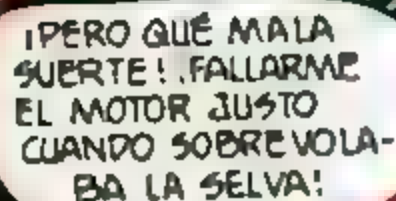 ¡PERO QUÉ MALA
SUERTE! .FALLARME
EL MOTOR JUSTO
CUANDO SOBREVOLA-
BA LA SELVA!